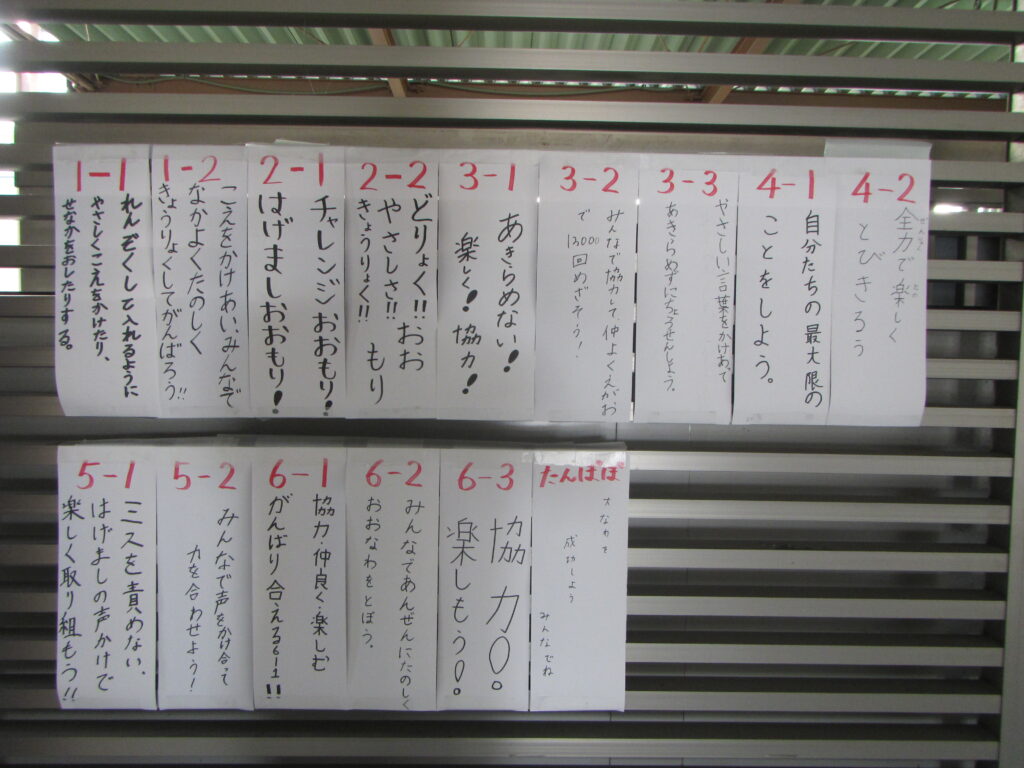 1-1
れんぞくして入れるように
やさしくこえをかけたり、
せなかをおしたりする。
1-2
こえをかけあい、みんなで
なかよくたのしく
きょうりょくしてがんばろう!!
2-1
チャレンジおおもり!
はげましおおもり!
2-2
どりょく!!おお
やさしさ!! もり
きょうりょく!!
3-1
あきらめない!
楽しく!協力!
3-2
みんなで協力して、仲よくえがお
で 13000回めざそう!
3-3
やさしい言葉をかけあって
あきらめずにちょうせんしよう。
4-1
自分たちの最大限の
ことをしよう。
4-2
全力で楽しく
とびきろう
5-1
ミスを責めない、
はげましの声かけで
楽しく取り組もう!!
5-2
みんなで声をかけ合って
力を合わせよう!
6-1
協力・仲良く・楽しむ
がんばり合える6の1!!
6-2
みんなであんぜんにたのしく
おおなわをとぼう。
6-3
協力!。
楽しもう!。
たんぽぽ
大なわを
成功しよう
みんなでね